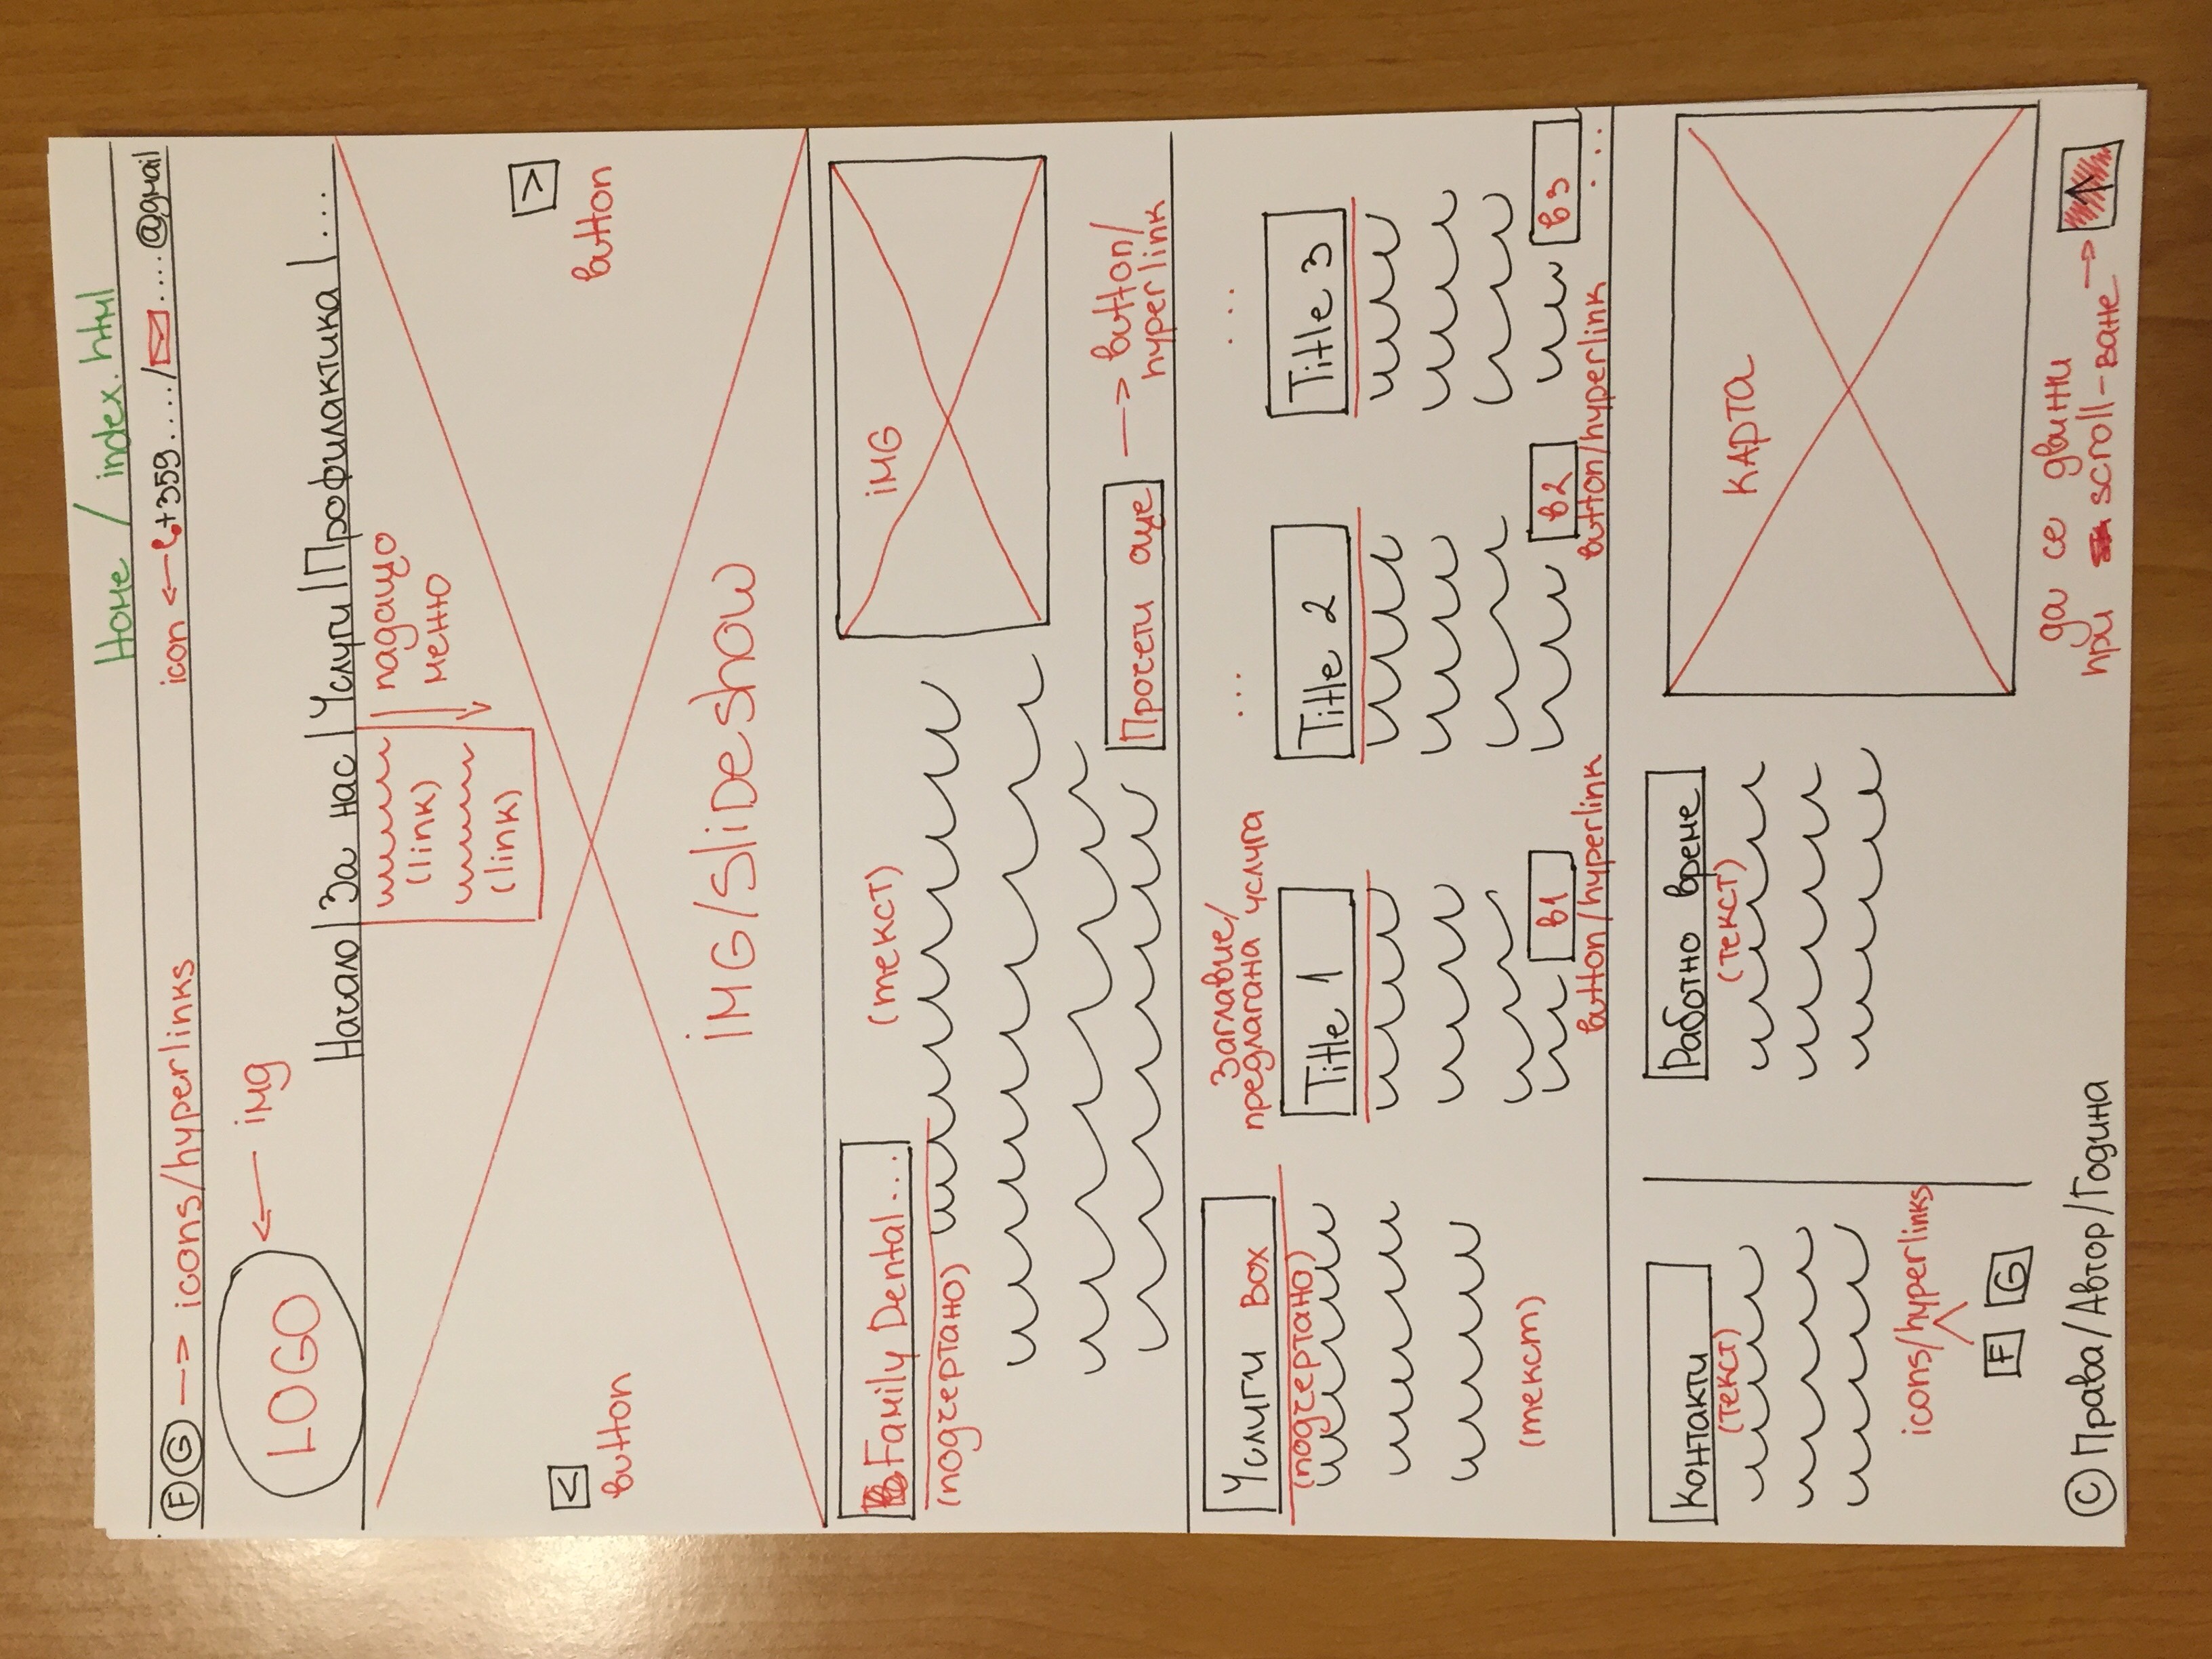 Home / index.html
F G → icons/hyperlinks
icon ← +359..../ ....@gmail
LOGO ← img
Начало | За нас | Услуги | Профилактика | ...
(link)
(link)
падащо
меню
<
button
>
button
IMG/Slideshow
Family Dental...
(подчертано)
(текст)
IMG
Прочети още → button/
hyperlink
Услуги Box
(подчертано)
(текст)
Заглавие/
предлагана услуга
...
...
Title 1
Title 2
Title 3
B1
button/hyperlink
B2
button/hyperlink
B3
...
Контакти
(текст)
icons/hyperlinks
F G
Работно време
(текст)
КАРТА
© Права/Автор/Година
да се движи
при scroll-ване → ↑